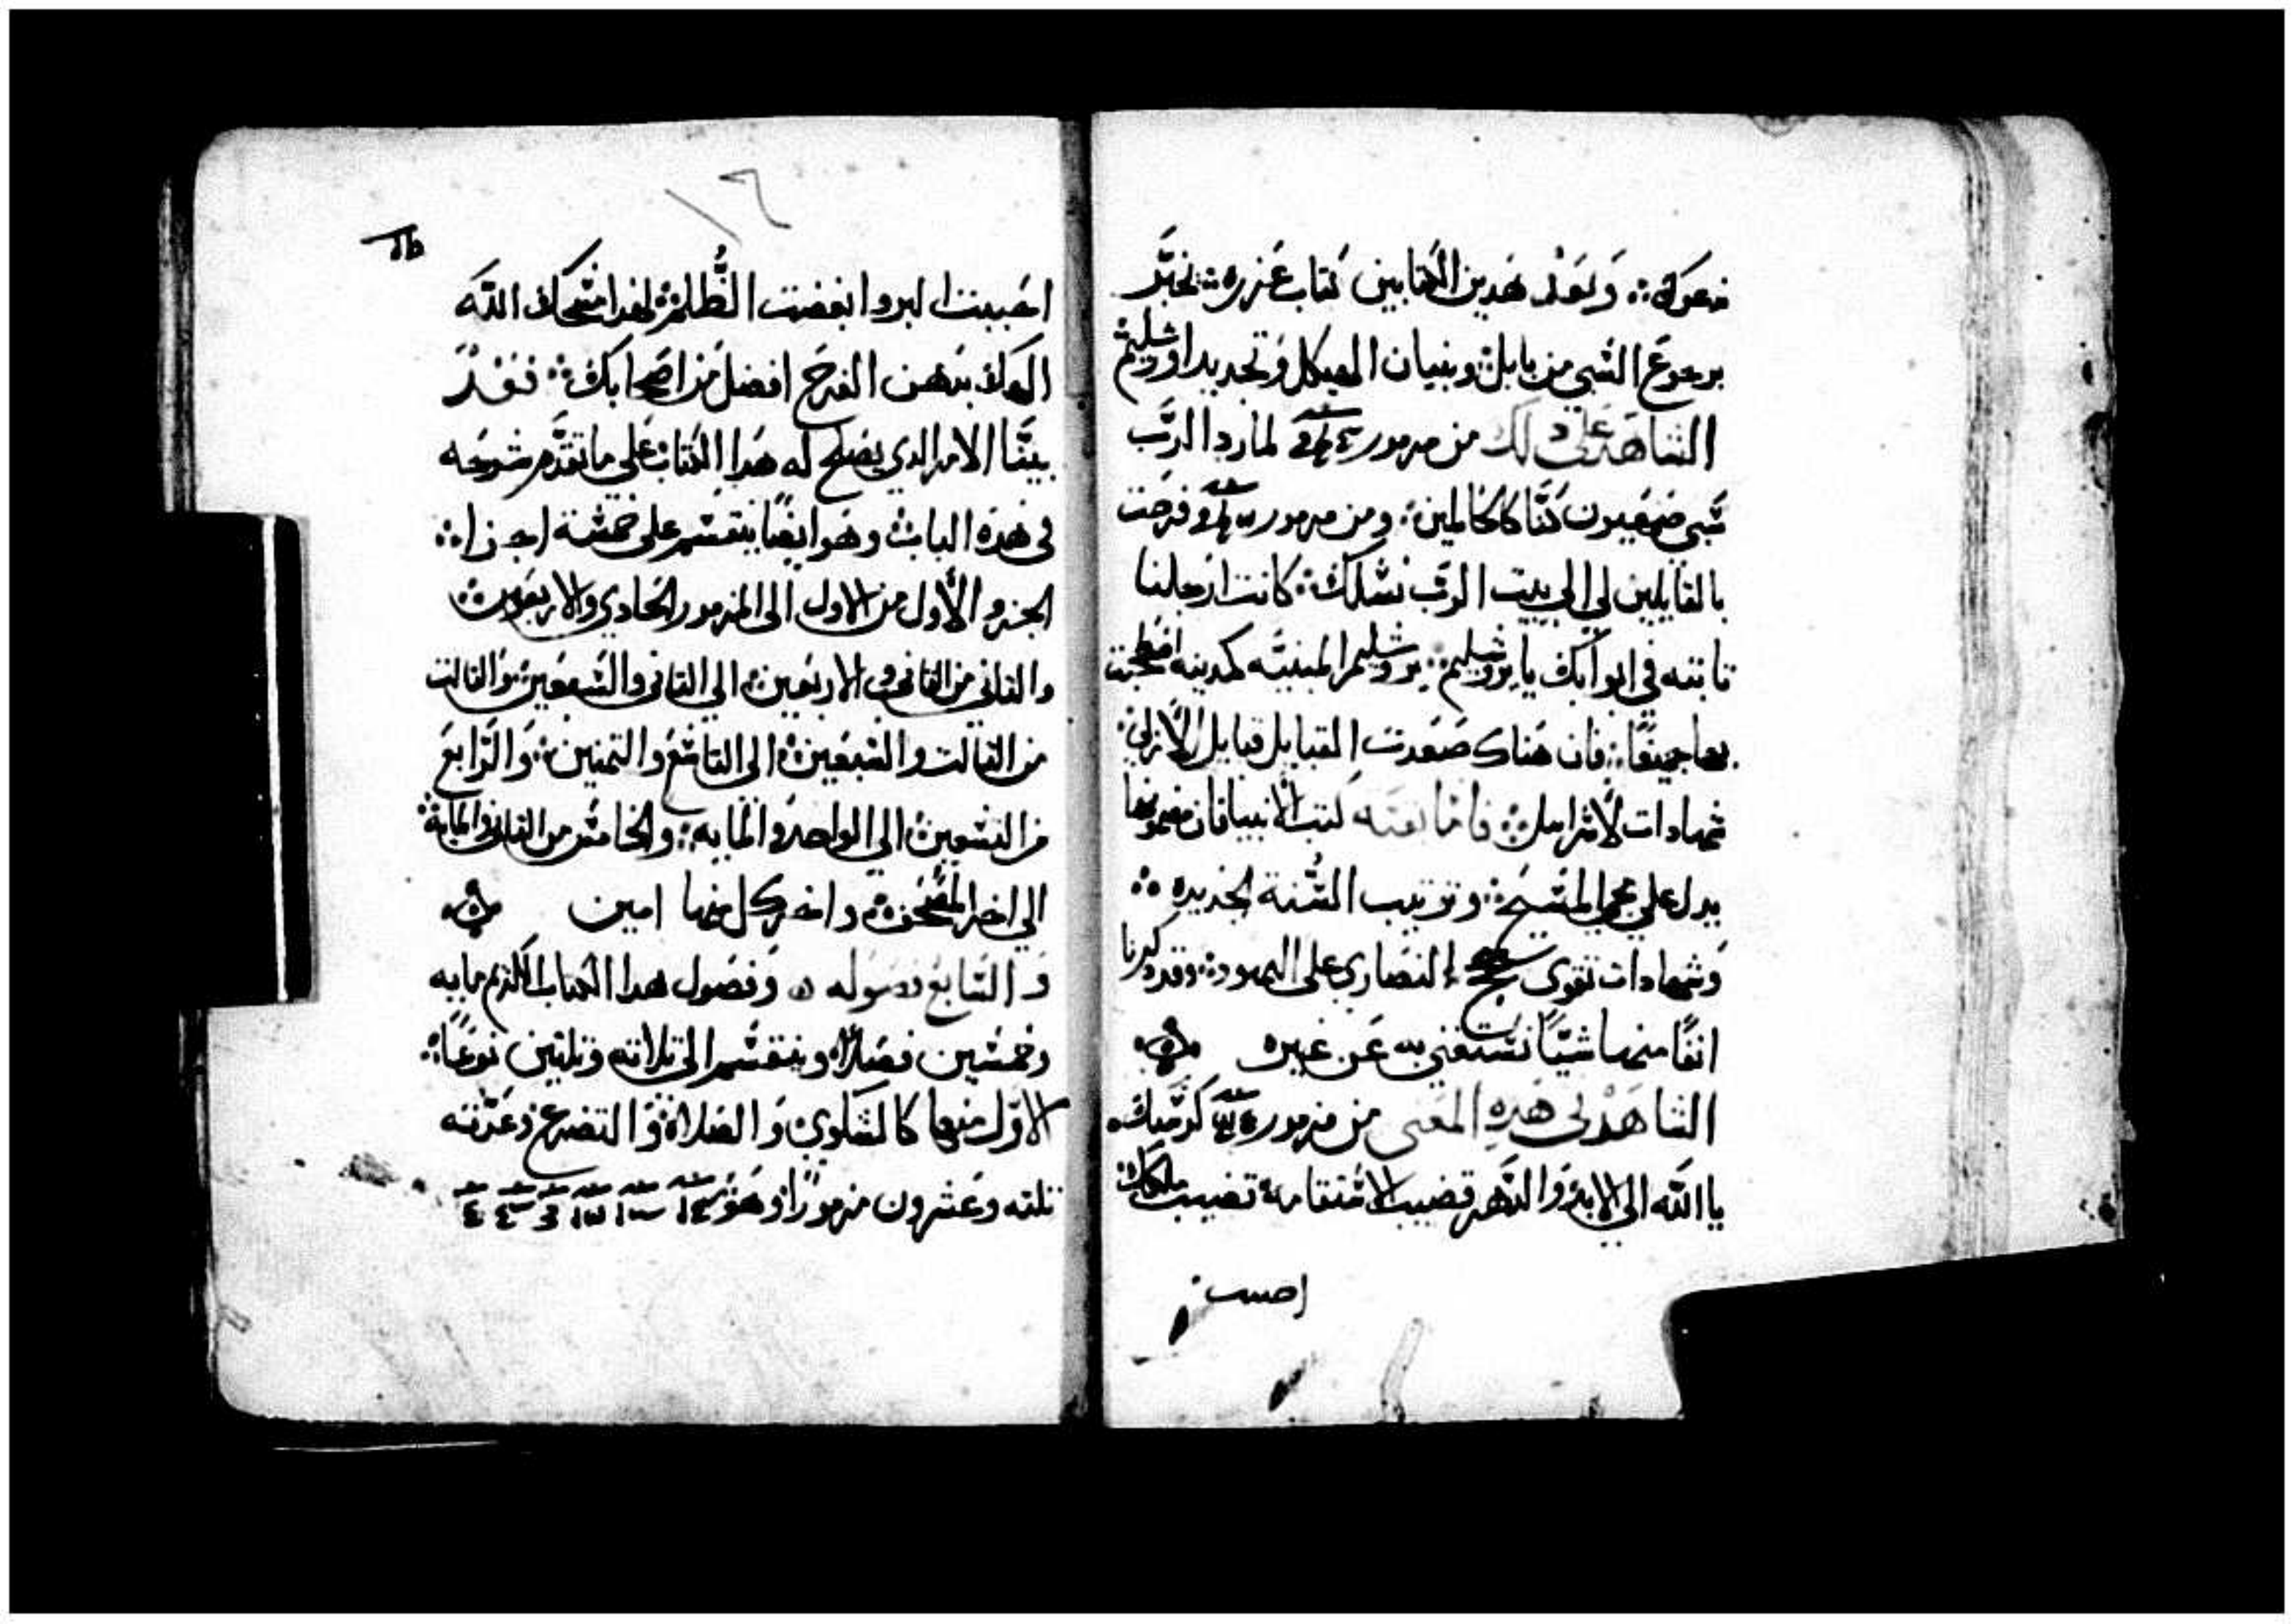 وَبَعْد هَدين الكتابين كتاب عَزره ܀ تخبَّر
برجوعَ السَّبي من بابل ܀ وبنيان الهيكل وَتجديد اورشليم
الشاهد على دلك من مزمور لما رد الرَّب
سَبي صَهيون كنَّا كالمحالمين ܀ ومن مزمور فرحَت
بالقايلين لي الي بيت الرَّب نسْلك ܀ كانت ارْجلنا
تابته في ابوابك يا يروشليم ܀ يروشليم المبنيَّه كمدينه
بها جميعًا ܀ فان هناك صَعدت القبايل قبايل
شهادات لاسْرايل ܀ فامَّا كتب الانبيا فان مضمونها
يدل على مجي المسَيح ܀ وترتيب السُّنة الجديده ܀
وَشهادات تقوى حجج النصَارى على اليهود ܀ وقد دكرنا
انفًا منها شيًّا نسْتغني به عَن غيره
الشاهدْ لي هَدهِ المعَنى من مزمور كرسَّيك
يا الله الى الابد وَالدَّهر قضيب الاسْتقامه قضيب ملكك
احببت
١٦
احَببت البر وابغضت الظُّلم ܀ لهدا مسَحَك الله
الَهك بدَهن الفرَح افضل مَن اصَحابك ܀ فقدْ
بيَّنا الامر الدي يصَلح له هَدا الكتاب عَلى ما تقدَّم شرحَه
في هَده الباب ܀ وهَو ايضًا ينقسَم على خمسَة اجزا ܀
الجزو الأول من الاول الى المزمور الحَادي والاربعَين ܀
والتاني من التاني والاربَعين ܀ الى التاني والسَّبعَين ܀ وَالتالت
من التالت والسَّبعَين ܀ الى التاسَع والتمنين ܀ وَالرَّابعَ
من التسَعين ܀ الى الواحد والمَايه ܀ والخامسَ من التاني والمايه ܀
الي اخر المصَحَف ܀ واخر كل منها امين
وَالسَّابعَ فصَوله ه وَفصَول هدا الكتاب الكريم مايه
وخمسَين فصَلاً ܀ وينقسَم الى تلاته وتلتين نوعَاً ܀
الاوّل منها كالشكوي وَالصَلاة وَالتضرع وَعَدَّته
تلته وعَشرون مزمورًا وَهَو